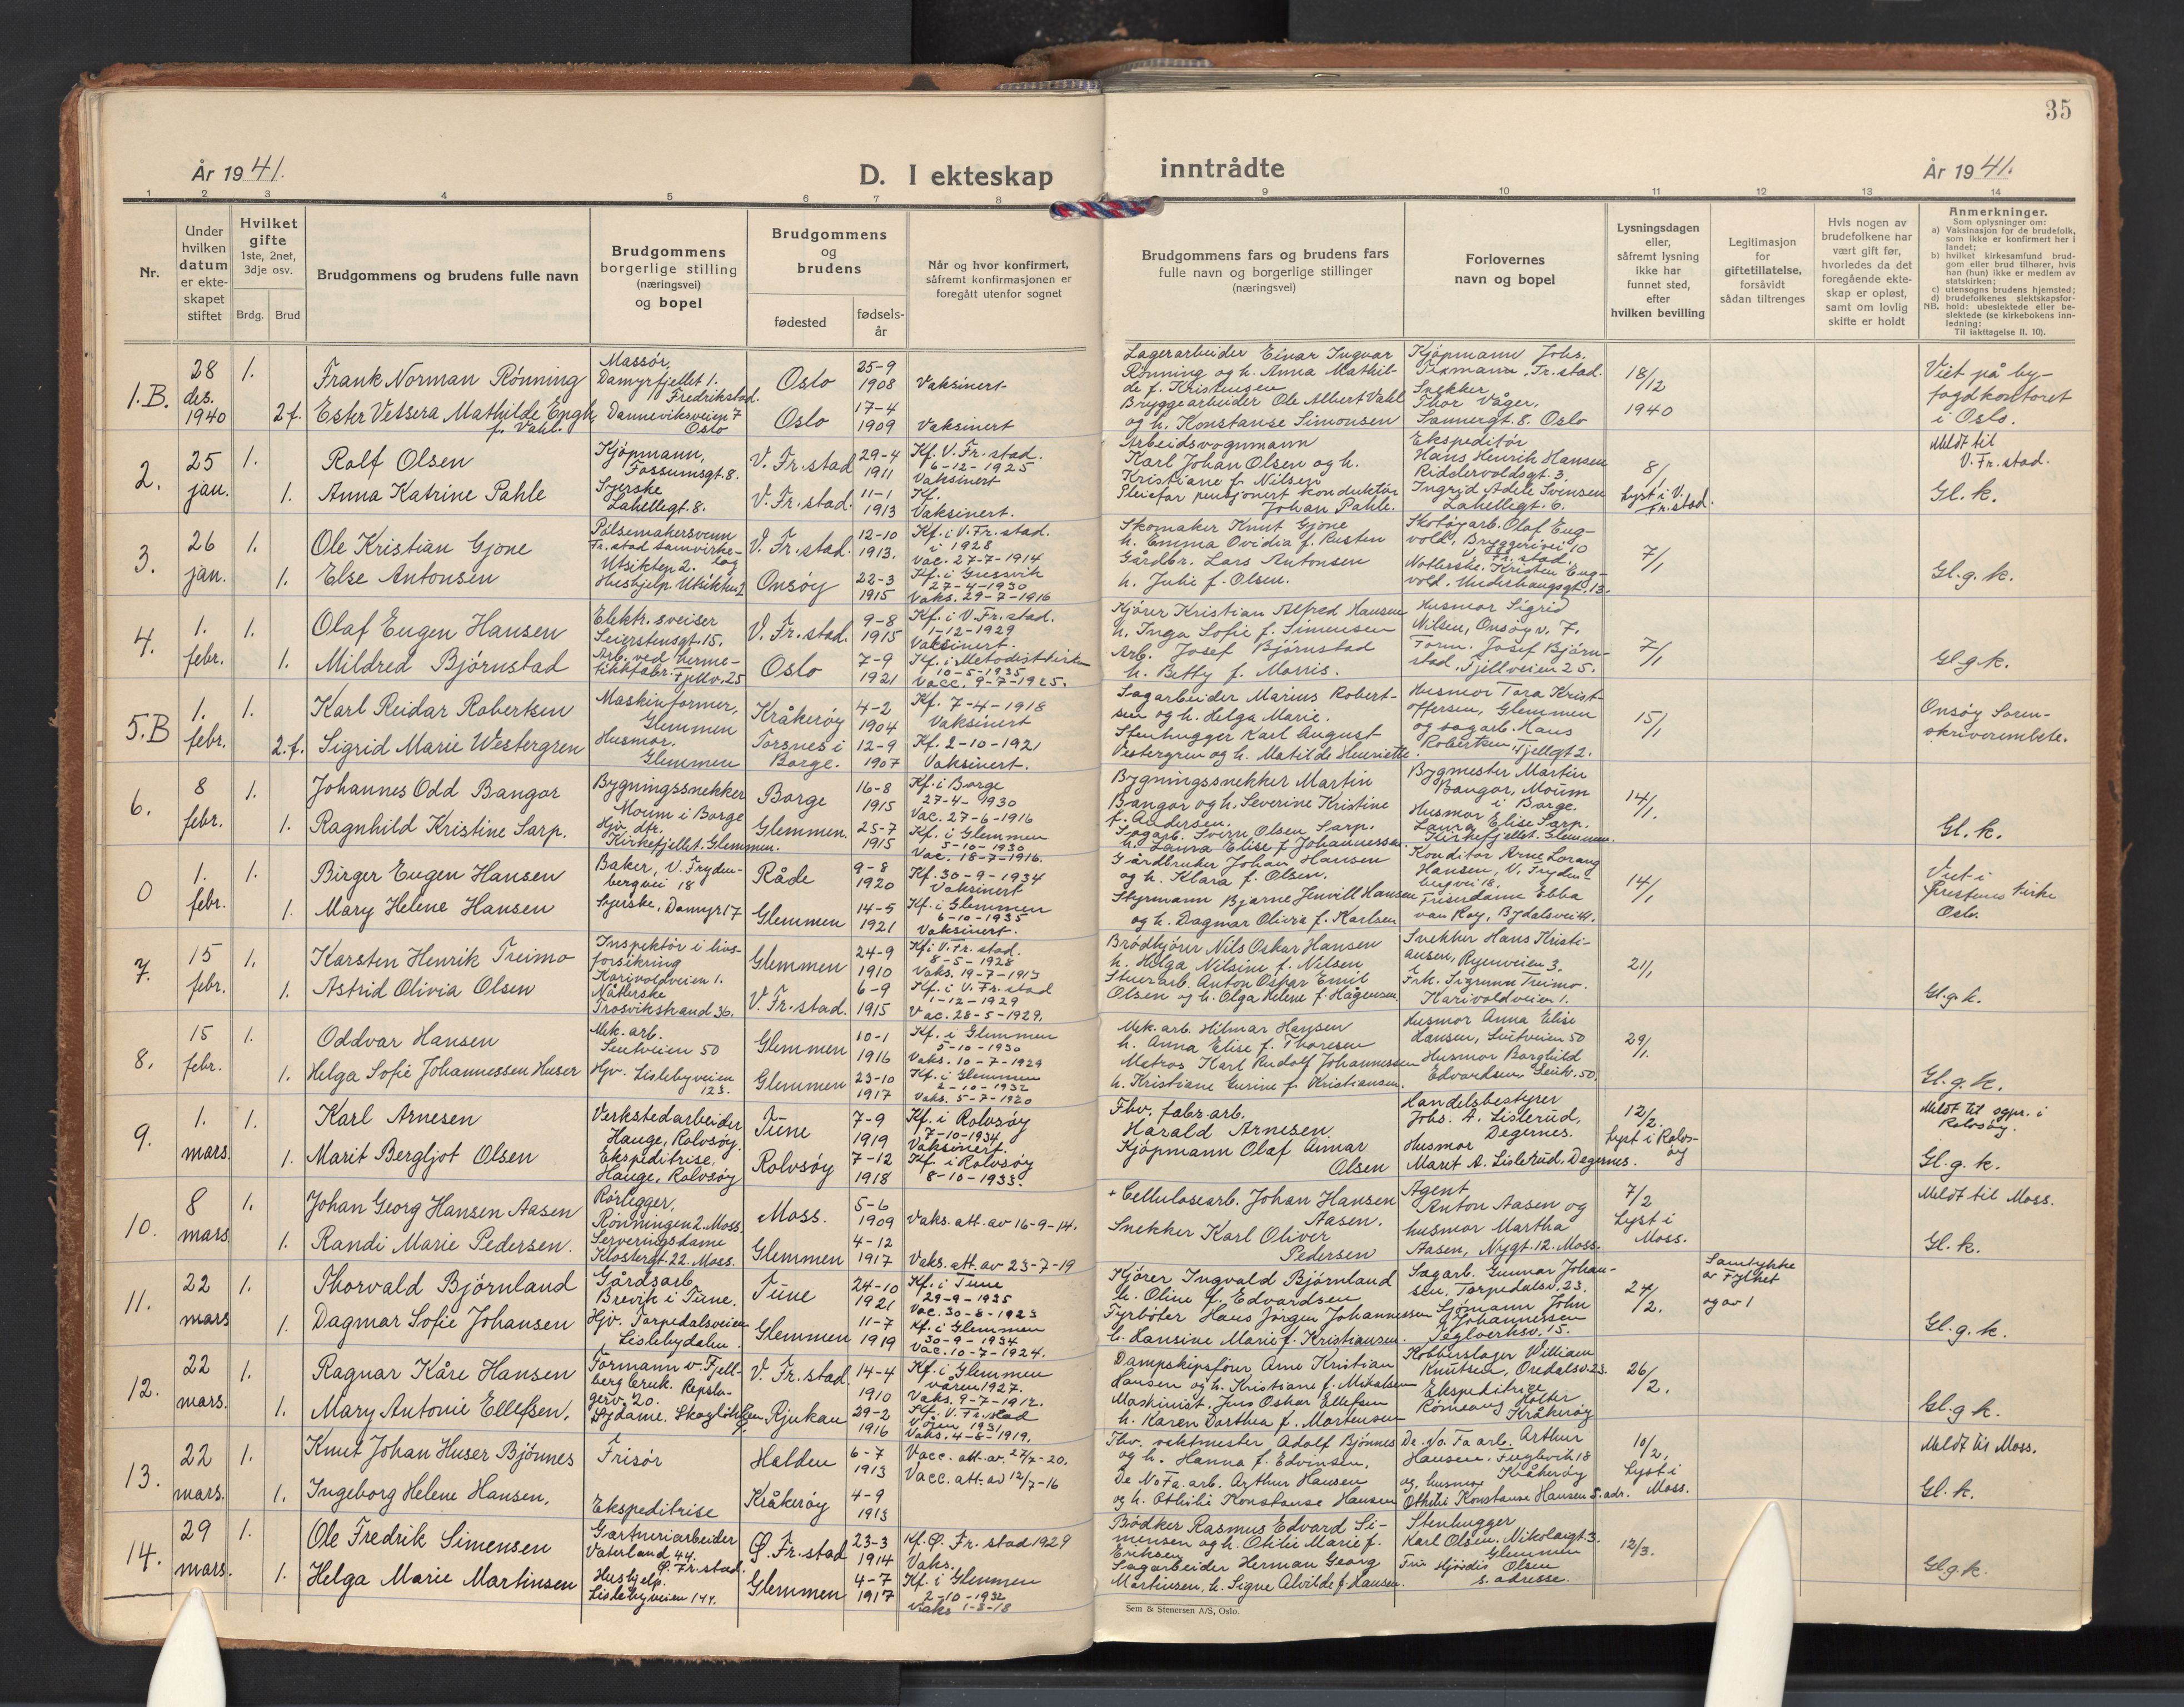 35
År 1941.
D. I ekteskap
inntrådte
År 1941.
1 2 3 4 5 6 7 8 9 10 11 12 13 14
Nr.
Under hvilken datum er ekteskapet stiftet
Hvilket gifte 1ste, 2net, 3dje osv.
Brdg. Brud
Brudgommens og brudens fulle navn
Brudgommens borgerlige stilling (næringsvei) og bopel
Brudgommens og brudens
fødested
fødsels-år
Når og hvor konfirmert, såfremt konfirmasjonen er foregått utenfor sognet
Brudgommens fars og brudens fars fulle navn og borgerlige stillinger (næringsvei)
Forlovernes navn og bopel
Lysningsdagen eller, såfremt lysning ikke har funnet sted, efter hvilken bevilling
Legitimasjon for giftetillatelse, forsåvidt sådan tiltrenges
Hvis nogen av brudefolkene har vært gift før, hvorledes da det foregående ekteskap er opløst, samt om lovlig skifte er holdt
Anmerkninger.
Som oplysninger om:
a) Vaksinasjon for de brudefolk, som ikke er konfirmert her i landet;
b) hvilket kirkesamfund brudgom eller brud tilhører, hvis han (hun) ikke er medlem av statskirken;
c) utensogns brudens hjemsted;
d) brudefolkenes slektskapsforhold: ubeslektede eller beslektede (se kirkebokens innledning:
NB. Til iakttagelse II. 10).
1.B. 28 des. 1940 1. Frank Norman Rönning Massör, Damyrfjellet 1. Fredrikstad. Oslo 25-9 1908 Vaksinert
2 f. Ester Vessera Mathilde Engh, f. Vahl. Danneviksveien 7 Oslo Oslo 17-4 1909 Vaksinert
Lagerarbeider Einar Ingvar Rönning og h. Anna Mathilde f. Kristensen
Bryggearbeider Ole Albert Vahl og h. Konstanse Simonsen
Kjöpmann Johs. Fr.stad.
Snekker Thor Våger, Sannergt. 8. Oslo
18/12 1940
Viet på byfogdkontoret i Oslo.
2. 25 jan. 1. Rolf Olsen Kjöpmann, Fossumsgt. 8. V. Fr.stad 29-4 1911 Kf. V. Fr.stad. 6-12-1925 Vaksinert
1. Anna Katrine Pahle Syerske Lahellegt. 8. V. Fr.stad. 11-1 1913 Kf. Vaksinert.
Arbeidsvognmann Karl Johan Olsen og h. Kristiane f. Nilsen
Pleiefar pensjonert konduktör Johan Pahle.
Ekspeditör Hans Henrik Hansen Riddervoldsgt. 3.
Ingrid Adele Svensen Lahellegt. 6.
8/1 Lyst i V. Fr.stad.
Meldt til V. Fr.stad.
Gl. k.
3. 26 jan. 1. Ole Kristian Gjone Pölsemakersvenn Fr.stad Samvirkelag Utsikten 2. V. Fr.stad. 12-10 1913. Kf. i V. Fr.stad. i 1928 Vac. 27-7-1914
1. Else Antonsen Hushjelp Utsikten 2 Onsöy 22-3 1915 Kf. i Gressvik 27-4-1930 Vaks. 29-7-1916
Skomaker Knut Gjone h. Emma Ovidia f. Rusten
Gårdbr. Lars Antonsen h. Julie f. Olsen.
Skotöyarb. Olaf Engvold, Bryggerivei 10 V. Fr.stad.
Kristen Engvold. Underhaugsgt. 13.
7/1
Gl. g. k.
4. 1. febr. 1. Olaf Eugen Hansen Elektr. sveiser Seierstensgt. 15. V. Fr.stad. 9-8 1915 Kf. i V. Fr.stad. 1-12-1929 Vaksinert.
1. Mildred Björnstad Arb. ved hermetikkfabr. Fjellv. 25 Oslo 7-9 1921 Kf. i Metodistkirken 10-5-1935 Vacc. 9-7-1925.
Kjörer Kristian Alfred Hansen h. Inga Sofie f. Simensen
Arb. Josef Björnstad h. Betty f. Morris.
Husmor Sigrid Nilsen, Onsöyv. 7.
Form. Josef Björnstad, Fjellveien 25.
7/1
Gl g k.
5.B 1. febr. 1. Karl Reidar Robertsen Maskinformer, Glemmen Kråkeröy 4-2 1904 Kf. 7-4-1918 Vaksinert
2. f. Sigrid Marie Westergren Husmor. Glemmen Torsnes i Borge. 12-9 1907 Kf. 2-10-1921 Vaksinert.
Sagarbeider Marius Robertsen og h. Helga Marie.
Stenhugger Karl August Vestergren og h. Matilde Henriette
Husmor Tora Kristoffersen, Glemmen og sagarb. Hans Robertsen, Fjellegt 2.
15/1
Onsöy Sorenskriverembete.
6. 8 febr. 1. Johannes Odd Bangor Bygningssnekker Moum i Borge Borge 16-8 1915 Kf. i Borge 27-4-1930 Vac. 27-6-1916
1. Ragnhild Kristine Sarp. Hjv. dtr. Kirkefjellet. Glemmen. Glemmen. 25-7 1915 Kf. i Glemmen 5-10-1930 Vac. 18-7-1916.
Bygningssnekker Martin Bangor og h. Severine Kristine f. Andersen.
Sagarb. Sverre Olsen Sarp. h. Laura Elise f Johannessen.
Bygmester Martin Bangor, Moum i Borge.
Husmor Laura Elise Sarp. Kirkefjellet. Glemmen.
14/1.
Gl. k.
0 1. febr. 1. Birger Eugen Hansen Baker, V. Frydenbergvei 18 Råde 9-8 1920 Kf. 30-9-1934 Vaksinert
1. Mary Helene Hansen Syerske, Damyr 17 Glemmen 14-5 1921 Kf. i Glemmen 6-10-1935 Vaksinert.
Gårdbruker Johan Hansen og h. Klara f. Olsen.
Styrmann Bjarne Jenvill Hansen og h. Dagmar Olivia f. Karlsen
Konditor Arne Lorang Hansen, V. Frydenbergvei 18.
Friserdame Ebba van Roy, Bydalsvei 4.
14/1
Viet i kirke Oslo.
7. 15 febr. 1. Karsten Henrik Treimo Inspektör i livsforsikring Karivoldveien 1. Glemmen 24-9 1910 Kf i V. Fr. stad. 8-5-1928 Vaks. 19-7-1913
1. Astrid Olivia Olsen Nåtlerske Trosvikstrand 36. V. Fr.stad. 6-9 1915 Kf. i V. Fr. stad 1-12-1929 Vac. 28-5-1929.
Brödkjörer Nils Oskar Hansen h. Helga Nilsine f. Nilsen
Stuerarb. Anton Oskar Emil Olsen og h. Olga Helene f. Hågensen.
Snekker Hans Kristiansen, Ryenveien 3.
Frk. Sigrunn Treimo. Karivoldveien 1.
21/1
Gl. g. k.
8. 15 febr. 1. Oddvar Hansen Mek. arb. Leutveien 50 Glemmen 10-1 1916 Kf. i Glemmen 5-10-1930 Vaks. 10-7-1929
1. Helga Sofie Johannessen Huser Hjv. Lislebyveien 123. Glemmen 23-10 1917 Kf. i Glemmen 2-10-1932 Vaks. 5-7-1920
Mek. arb. Hilmar Hansen h. Anna Elise f. Thoresen
Matros Karl Rudolf Johannessen h. Kristiane Gurine f. Kristiansen.
Husmor Anna Elise Hansen, Leutveien 50
Husmor Borghild Edvardsen Leutv. 50.
29/1.
Gl. g. k.
9. 1. mars. 1. Karl Arnesen Verkstedarbeider Hauge, Rolvsöy. Tune 7-9 1919 Kf. i Rolvsöy 7-10-1934 Vaksinert.
1. Marit Bergljot Olsen Ekspeditrise, Hauge, Rolvsöy Rolvsöy 7-12 1918 Kf. i Rolvsöy 8-10-1933.
Fhv. fabr. arb. Harald Arnesen
Kjöpmann Olaf Aimar Olsen
Handelsbestyrer Johs. A. Lislerud, Degernes.
Husmor Marit A. Lislerud, Degernes.
12/2. Lyst i Rolvsöy
Meldt til sgpr. i Rolvsöy.
Gl. g. k.
10. 8 mars 1. Johan Georg Hansen Aasen Rörlegger, Rönningen 2. Moss. Moss. 5-6 1909 Vaks. att. av 16-9-14.
1. Randi Marie Pedersen. Serveringsdame Klostergt. 22. Moss. Glemmen 4-12 1917 Vaks. att. av 23-7-19
+ Cellulosearb. Johan Hansen Aasen.
Snekker Karl Oliver Pedersen
Agent Anton Aasen og husmor Martha Aasen, Nygt. 12. Moss.
7/2 Lyst i Moss.
Meldt til Moss.
Gl. k.
11. 22 mars 1. Thorvald Björnland Gårdsarb. Brevik i Tune. Tune 24-10 1921 Kf. i Tune 29-9-1935 Vac. 30-8-1923
1. Dagmar Sofie Johansen Hjv. Torpedalsveien Lislebydalen. Glemmen 11-7 1919 Kf. i Glemmen 30-9-1934 Vac. 10-7-1924.
Kjörer Ingvald Björnland h. Oline f. Edvardsen
Fyrböter Hans Jörgen Johannessen h. Hansine Marie f. Kristiansen.
Sagarb. Gunnar Johansen, Torpedalsv. 23.
Sjömann John Johannessen Teglverksv. 15.
27/2.
Samtykke av Fylket og av 1
Gl. g. k.
12. 22 mars. 1. Ragnar Kåre Hansen Formann v. Fjellberg bruk. Repslagerv. 20. V. Fr.stad. 14-4 1910 Kf. i Glemmen våren 1927. Vaks. 9-7-1912.
1. Mary Antonie Ellefsen. Sydame. Rjukan 29-2 1916 Kf. V. Fr.stad Våren 1931 Vaks. 4-8-1919.
Dampskipsförer Arne Kristian Hansen og h. Kristiane f. Mikalsen
Maskinist. Jens Oskar Ellefsen h. Karen Dorthea f. Mortensen
Kobberslager William Knutsen, Oredalsv. 23.
Ekspeditrise Holter Kråkeröy
26/2.
Gl. g k.
13. 22 mars. 1. Knut Johan Huser Bjönnes Frisör Halden 6-7 1913 Vacc. att. av. 27/7-20.
1. Ingeborg Helene Hansen. Ekspeditrise Kråkeröy 4-9 1913 Vacc. att. av 12/7-16
Fhv. vaktmester Adolf Bjönnes og h. Hanna f. Edvinsen.
De No Fa. arb. Arthur Hansen og h. Othilie Konstanse Hansen
De. No. Fa arb. Arthur Hansen. Fuglevik 18 Kråkeröy
og husmor Othilie Konstanse Hansen s. adr.
10/2. Lyst i Moss.
Meldt til Moss.
Gl. k.
14. 29 mars. 1. Ole Fredrik Simensen Gartneriarbeider Vaterland 44. Ø. Fr.stad. Ø. Fr.stad 23-3 1914 Kf. Ø. Fr. stad 1929 Vaks.
1. Helga Marie Martinsen Hushjelp. Lislebyveien 144. Glemmen 4-7 1917 Kf. i Glemmen 2-10-1932 Vaks 1-8-18
Bödker Rasmus Edvard Simensen og h. Otilie Marie f. Eriksen
Sagarbeider Herman Georg Martinsen, h. Signe Alvilde f. Hansen.
Stenhugger Karl Olsen, Nikolaigt. 3. Glemmen
Fru Hjördis Olsen s. adresse.
12/3.
Gl g. k.
Sem & Stenersen A/S, Oslo.